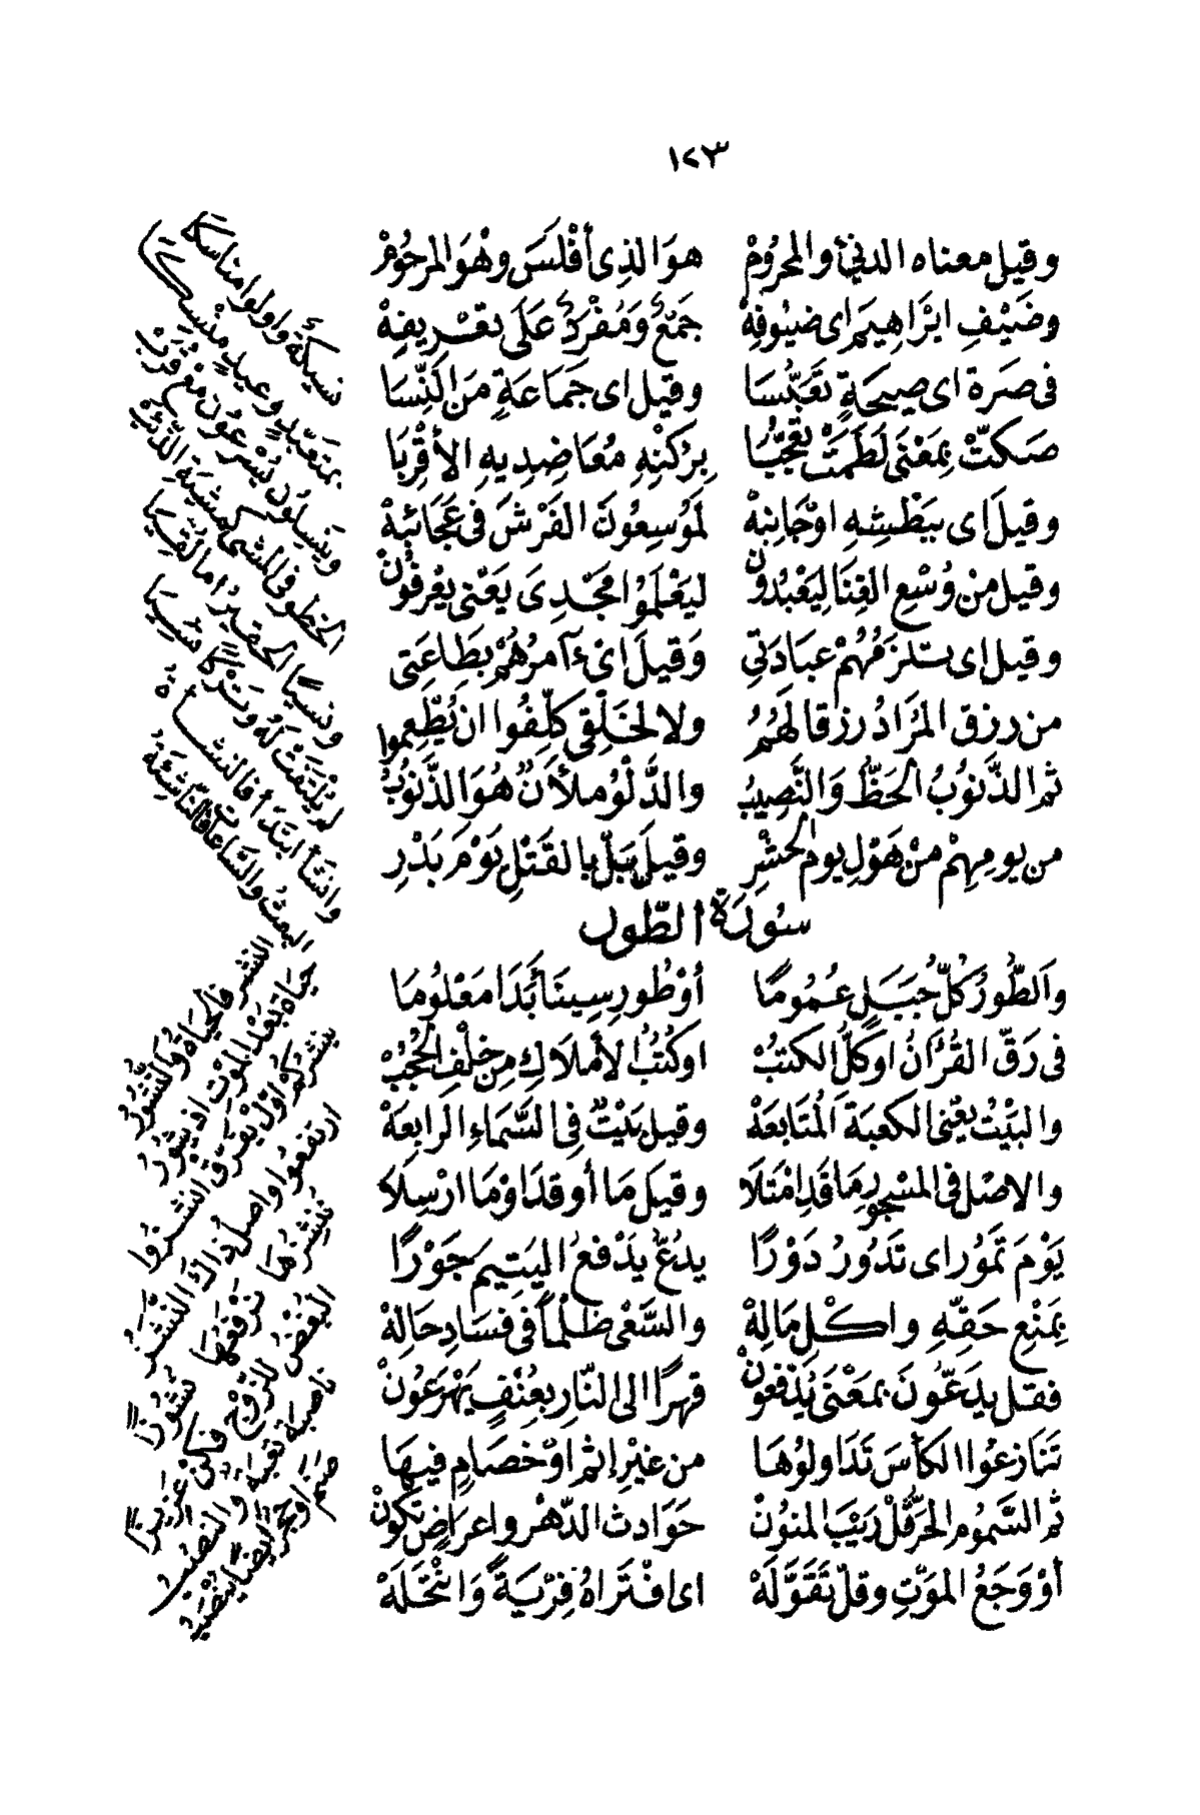 ١٢٣
وقيل معناه الدنئ والمحرُومْ هوَ الذِى أفْلَسَ وهْوَ المرحُومْ
وضَيْفِ ابْرَاهِيمَ اى ضيُوفِهْ جَمْعٌ وَمُفْرَدٌ عَلَى تعْرِيفِهْ
فى صَرة اى صيحَةٍ تَعَبُّسَا وقيل اى جَمَاعَةٍ مَنَ النِّسَا
صَكتْ بمَعْنَى لَطَمَتْ تَعَجُّبَا بِرُكنِهِ مُعَاضِدِيهِ الأقْرِبَا
وقيلَ اى ببَطْشِهِ اوْجَانِبِهْ لَمُوسِعُونَ الفَرْشَ فى عَجَائبِهْ
وقيل مِنْ وُسْعِ الغِنَا لِيَعْبُدونْ ليَعْلَمُوا مَجْدِىَ يَعْنى يعْرفُونْ
وقيل اى تستلزَمُهُمْ عبَادَتِى وَقيلَ اىْ ءَآمرُهُمْ بطَاعَتى
من رزق المرَادُ رزقا لَهُمُ ولا لخَلقِى كلِّفُوا ان يُطْعِموا
ثم الذّنوُبُ الحَظُّ وَالنَّصِيبُ والدَّلْوُ ملأَنٌ هُوَ الذَّنوُبُ
من يومِهِمْ منْ هَوْلِ يوم الحشْرِ وقيلَ بَلْ بالقَتْلِ يَوْمَ بَدْرِ
سُورَةُ الطّور
وَالطُّورُ كلُّ جَبَلٍ عُمُومًا أوْ طُورِ سِينَا أَبَدَا مَعْلُومَا
فى رَقّ القُرْءَانُ اوكلُّ الكتبْ اوكُتُبُ الأملاَكِ مِن خلْفِ الحُجُبْ
والبَيْتُ يعْنى الكعبَةَ المُتَابَعَهْ وقيل بَيْتٌ فِى السَّمَاءِ الرابعَهْ
والاصْل فى المسْجورِ مَا قَدِ امْتَلاَ وقيلَ مَا أوقدَ اوْ مَا ارْسِلاَ
يَوْمَ تَمُورُ اى تَدُورُ دَوْرًا يدُعُّ يدْفعُ اليَتِيمَ جَوْرًا
بمَنْعِ حَقِّهِ واكْلِ مَالِهْ والسَّعْى ظلْماً فى فسَادِ حَالِهْ
فقل يدَعُّونَ بمَعْنَى يُدْفَعونْ قهرًا الى النّارِ بعُنْفٍ يَهْرَعُونْ
تَنَازعُوا الكأْسَ تَدَاولوُهَا من غيْرِ إثمٍ اوْ خصَامٍ فيهَا
ثم السَّمُومِ الحَرُّ قُلْ رَيْبَ المنوُنْ حَوَادث الدّهْر واعرَاضٍ تكُونْ
أوْ وَجَعُ المَوْتِ وقلْ تَقَوَّلَهْ اى افْتَرَاهُ فِرْيَةً وَانْتَحَلَهْ
نسيكَةٌ واولوا مناسكَا
بمتعبّدٍ وعيدٍ منْسِكَا
وينسِلوُن يُسْرعُون مَعْ قرُبْ
الخطو فى المشى كمشيَةِ الذّئبْ
ونسيًا الحقيرُ ما لقيَا
لم يُلتَفَتْ لَهُ وتركا نُسِيَا
وانشأ ابتدَأ فالنشأة
البعثُ والسَّاعَاتُ النَّاشئةُ
النشر فالحيَاةُ والنُّشُورُ
حيَاة بَعْد الموْتِ اذ يثورُ
ينشزُ اوّل تفرّق انشزُوا
ارتفعُوا واصل ذاك النشَزُ
ننشزُهَا نرْفعُهَا نُشُوزًا
البُغْضُ للزَّوْجِ فكُنْ عَزِيزًا
ناصبَة تَعبَة والنُّصُبُ
صَنَم اوحجرٌ ايضًا يُنْصَبُ